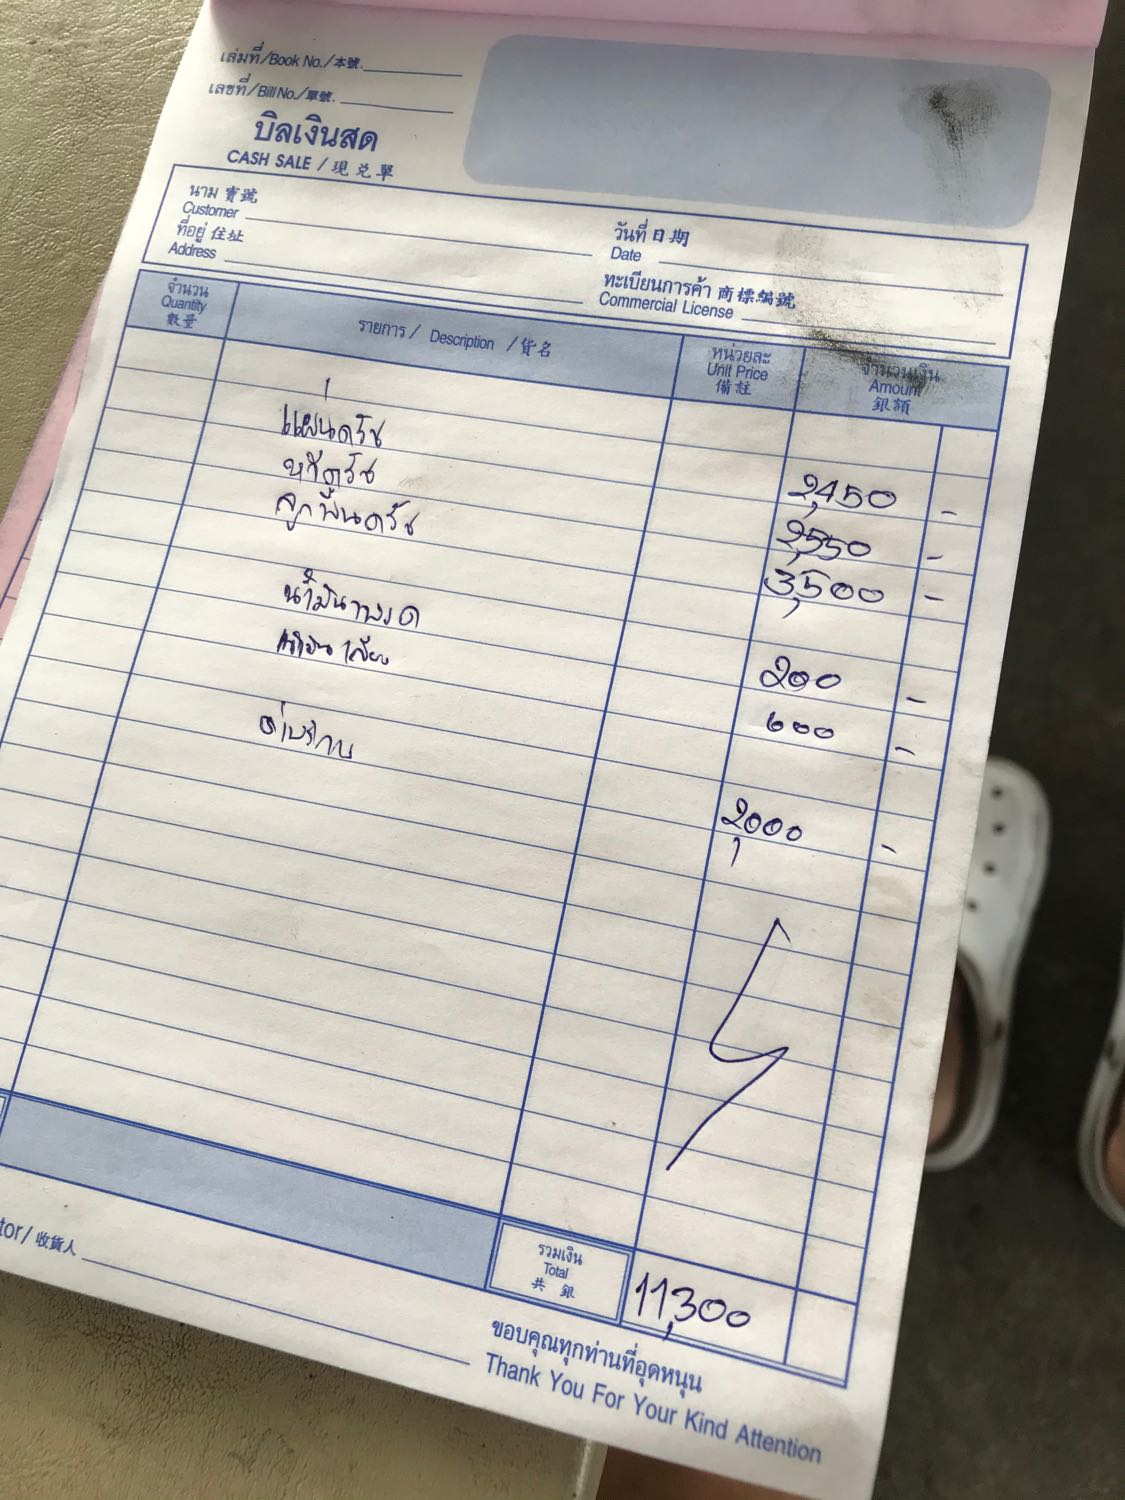 เล่มที่/Book No./本號.
เลขที่/Bill No./單號.
บิลเงินสด
CASH SALE / 現兌單
นาม 寶號
Customer
ที่อยู่ 住址
Address
วันที่ 日期
Date
ทะเบียนการค้า 商標編號
Commercial License
จำนวน
Quantity
數量
รายการ / Description / 貨名
หน่วยละ
Unit Price
備註
จำนวนเงิน
Amount
銀額
แผ่นครัช 2,450 -
หวีครัช 2,550 -
ลูกปืนครัช 3,500 -
น้ำมันเบรค 200 -
600 -
ค่าบริการ 2,000 -
tor/收貨人
รวมเงิน
Total
共銀
11,300
ขอบคุณทุกท่านที่อุดหนุน
Thank You For Your Kind Attention